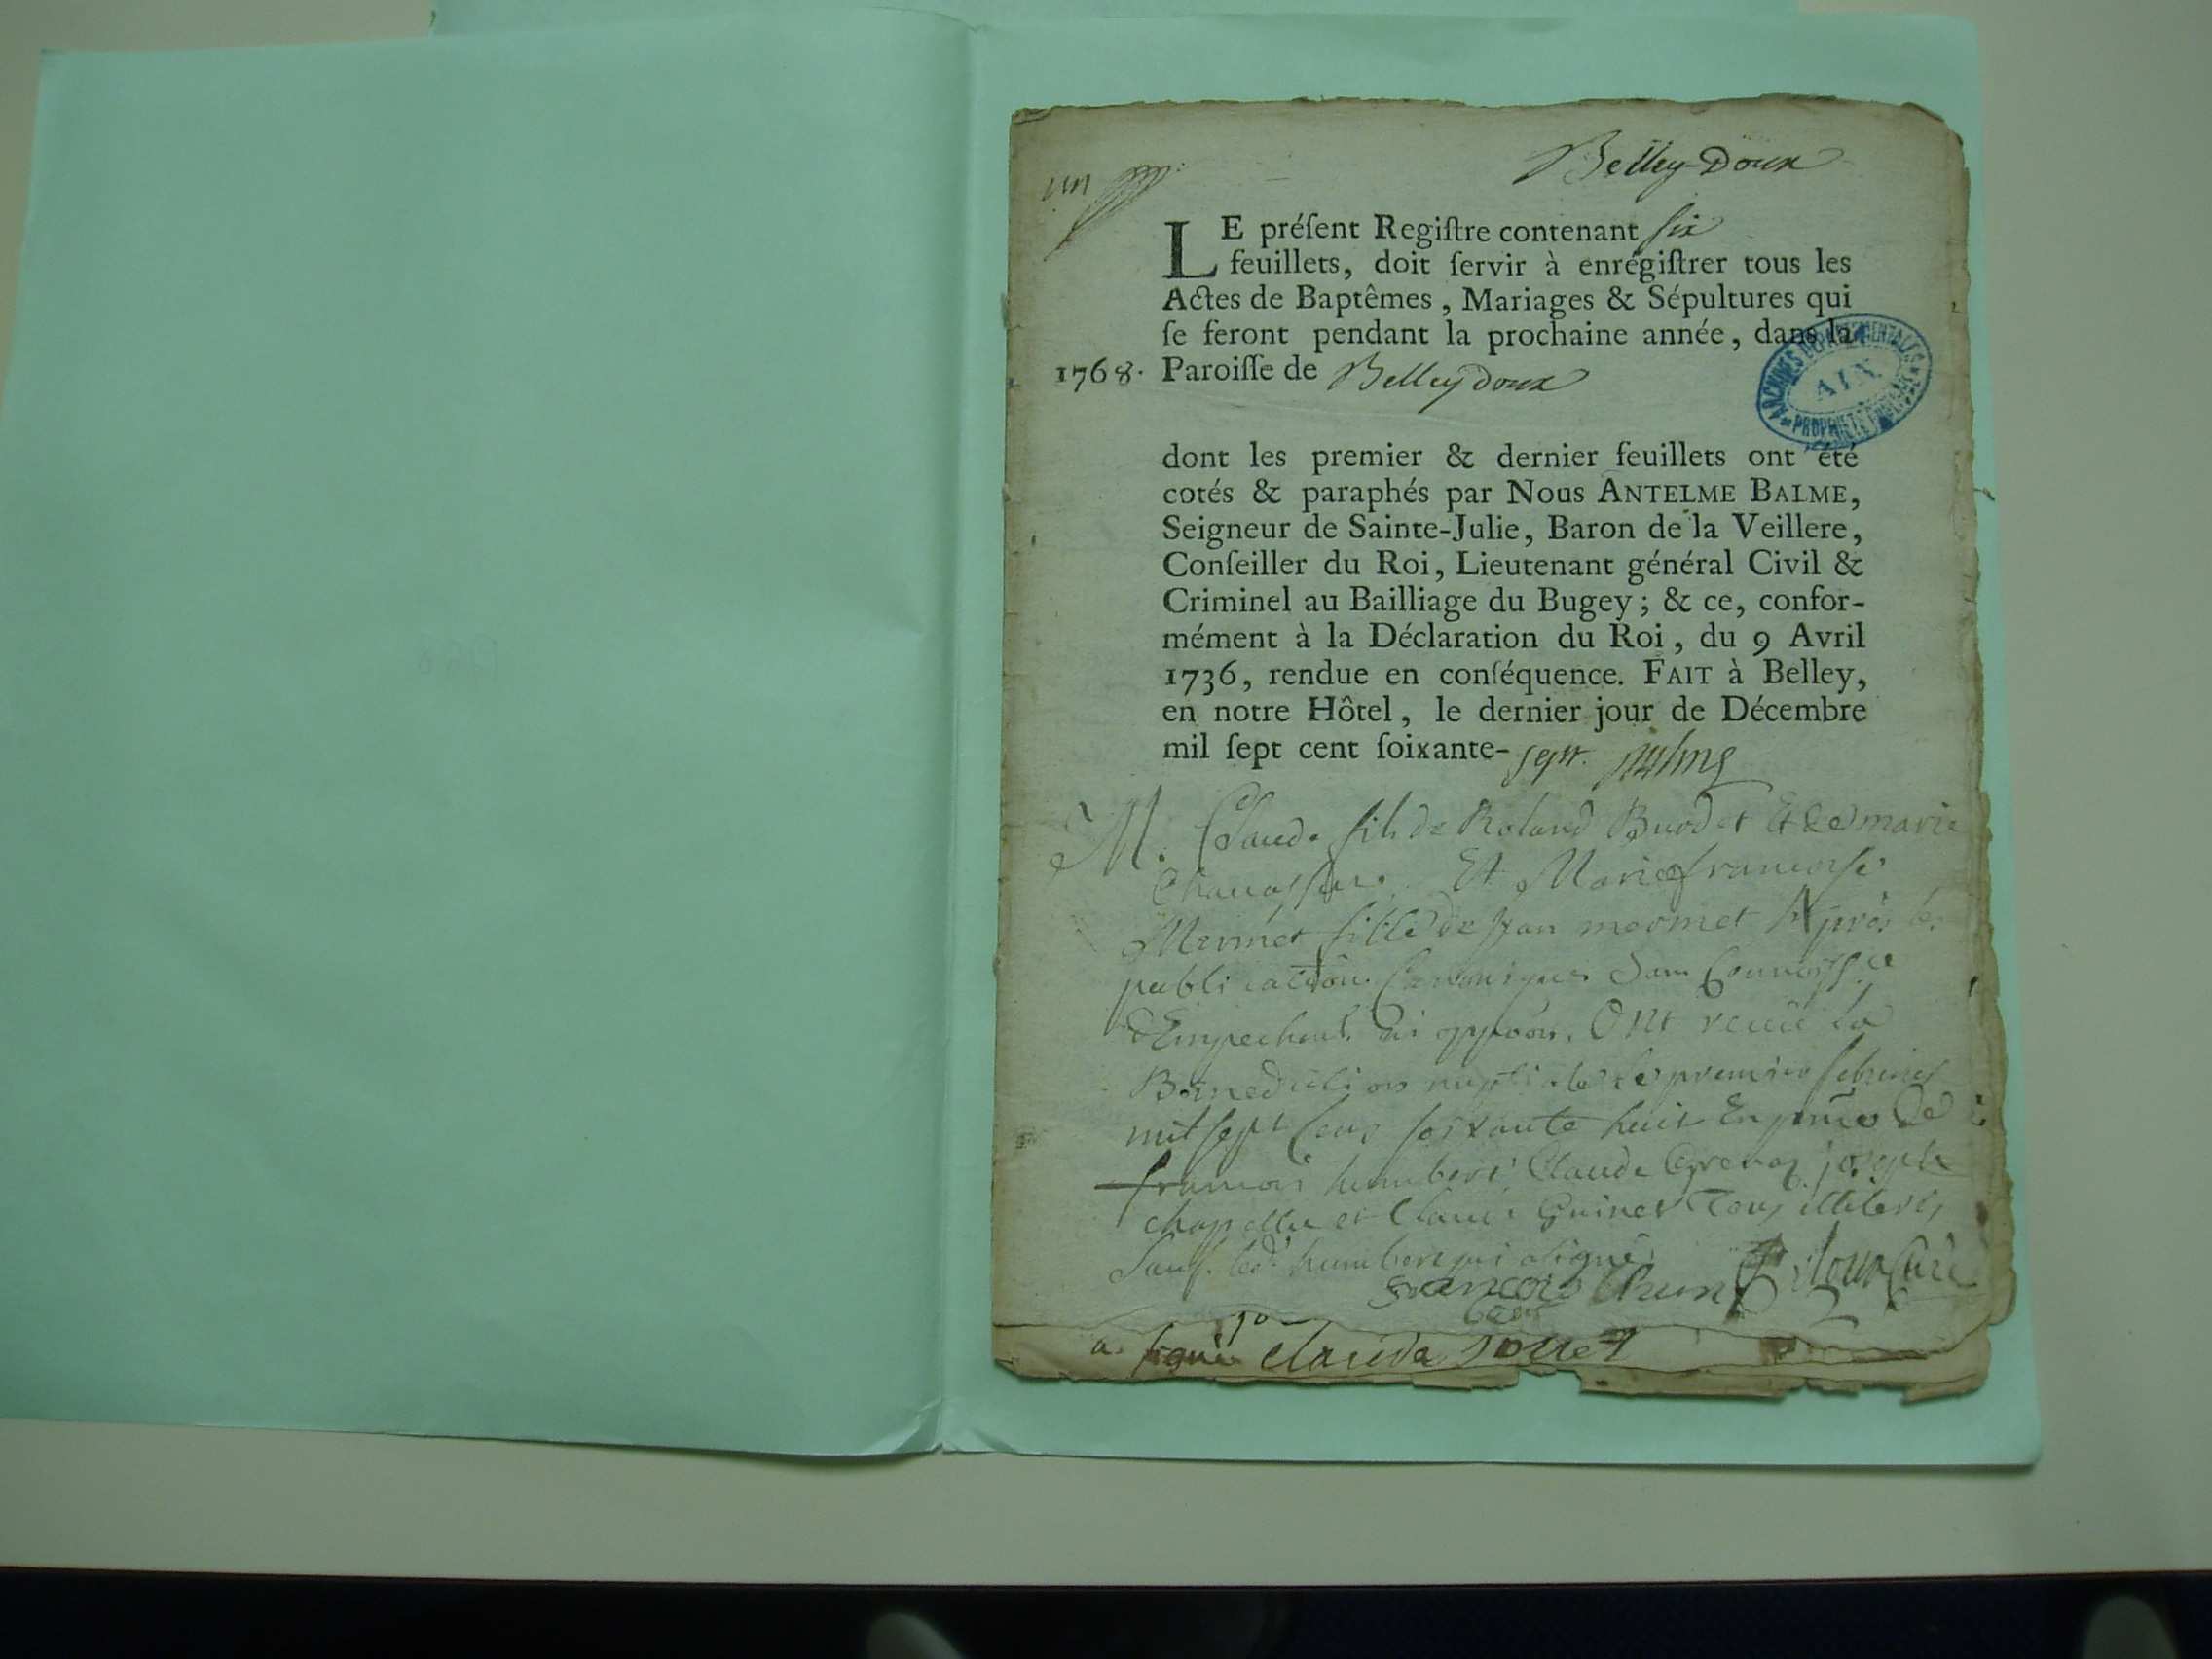 un
Belley-Doux
LE préſent Regiſtre contenant ſix
feuillets, doit ſervir à enrégiſtrer tous les
Actes de Baptêmes, Mariages & Sépultures qui
ſe feront pendant la prochaine année, dans la
1768. Paroiſſe de Belleydoux
ARCHIVES DÉPARTEMENTALES
AIN
PROPRIÉTÉ PUBLIQUE
dont les premier & dernier feuillets ont été
cotés & paraphés par Nous ANTELME BALME,
Seigneur de Sainte-Julie, Baron de la Veillere,
Conſeiller du Roi, Lieutenant général Civil &
Criminel au Bailliage du Bugey; & ce, confor-
mément à la Déclaration du Roi, du 9 Avril
1736, rendue en conſéquence. FAIT à Belley,
en notre Hôtel, le dernier jour de Décembre
mil ſept cent ſoixante-sept. Balme
M. Claude fils de Roland Burdet Et de marie
Et Marie francoise
Mermet fille de Jean mermet Après les
publications Canoniques sans
d'Empechmt ni oppoõn. Ont recüe la
Benediction nuptiale le premier febrier
mil sept cens soixante huit En pñce de
francois humbert, Claude Grenaz, joseph
chapellu et Claude Guinet Tous illiterés
Sauf led. humbert qui a signé.
Francois hum
bert
Curé
a signé claude